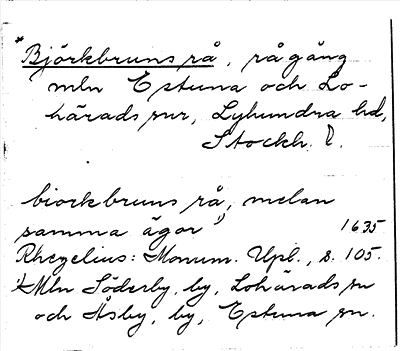 * Björkbruns rå, rågång
mln Estuna och Lo-
härads snr, Lyhundra hd,
Stockh. l.
biorkbruns rå, melan
samma ägor 1) 1635
Rhezelius: Monum. Upl., s. 105.
1) Mln Söderby, by, Lohärads sn
och Åsby, by, Estuna sn.